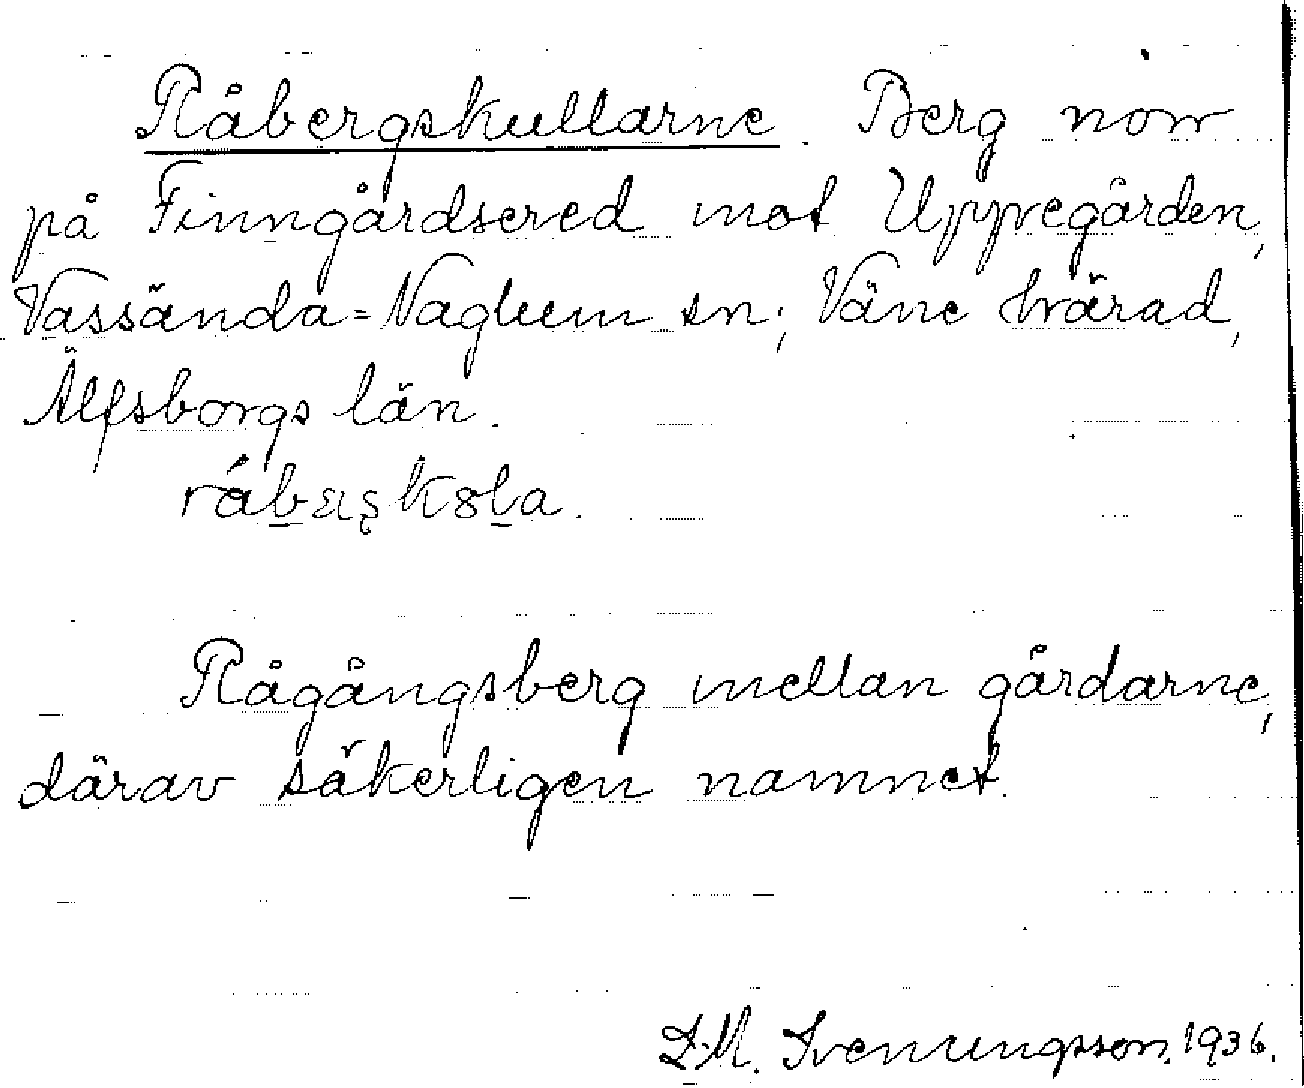 Råbergskullarne. Berg norr
på Finngårdsered mot Uppegården,
Vassända=Naglum sn; Väne härad,
Älfsborgs län.
Rågångsberg mellan gårdarne,
därav säkerligen namnet.
D.M. Svenungsson. 1936.